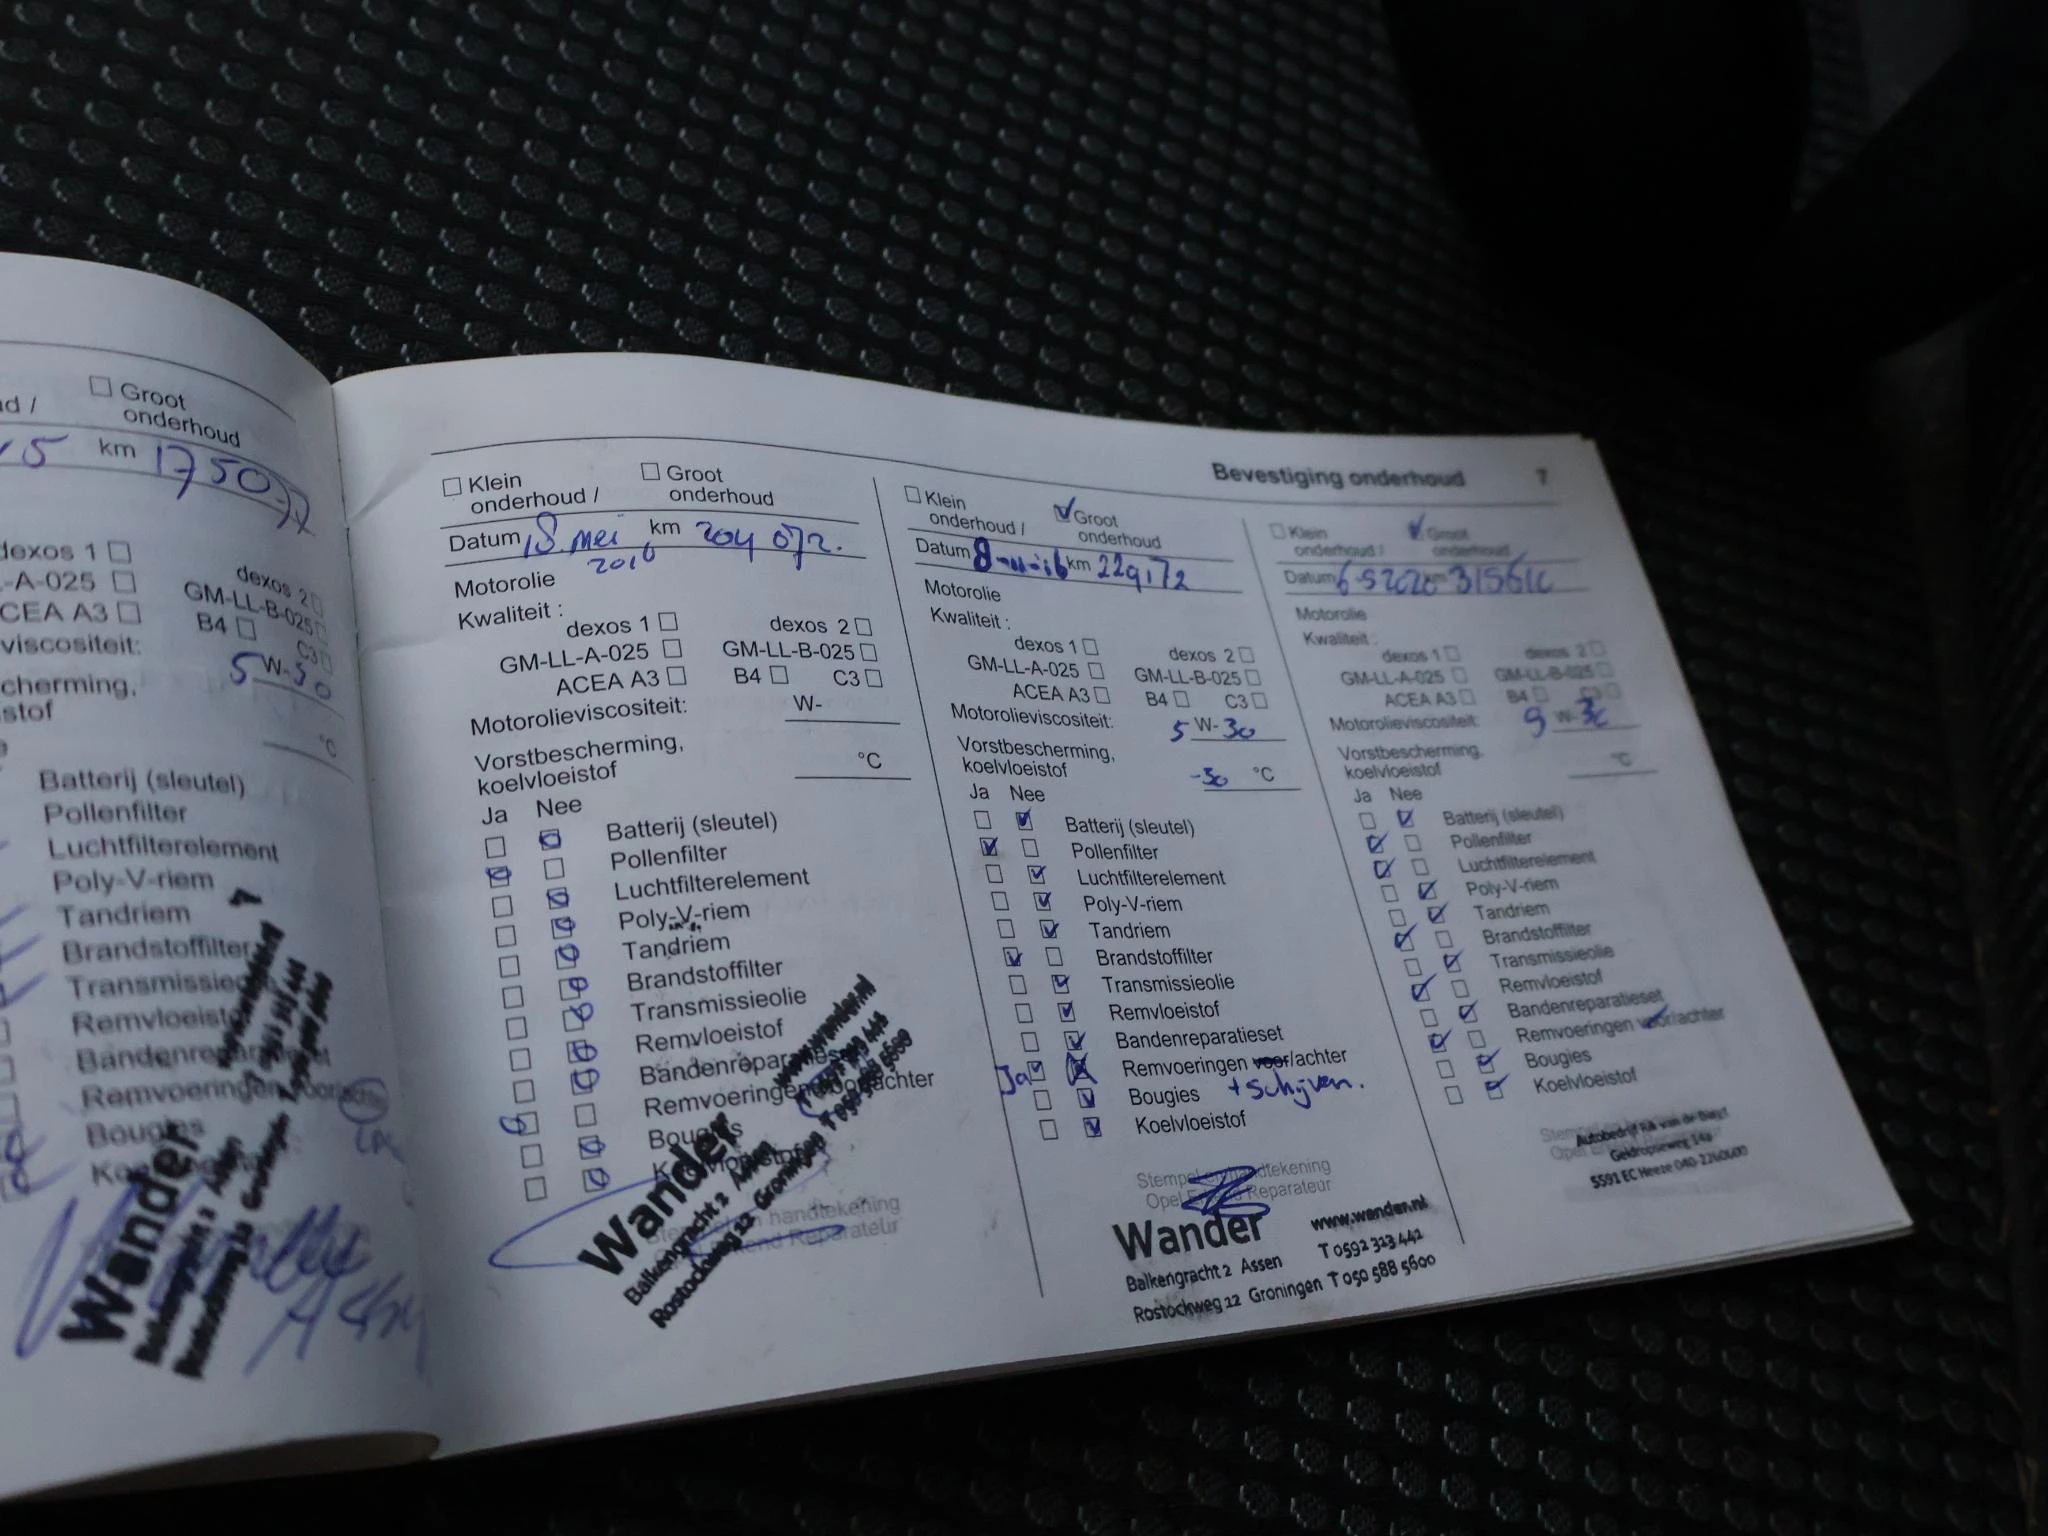 Groot
onderhoud
km 175077
dexos 1
dexos 2
GM-LL-B-025
B4
C3
5 W-30
°C
Batterij (sleutel)
Pollenfilter
Luchtfilterelement
Poly-V-riem
Tandriem
Brandstoffilter
Remvloeistof
Bougies
Wander
Bevestiging onderhoud 7
Klein
onderhoud /
Groot
onderhoud
Datum 18 mei km 204 072.
2016
Motorolie
Kwaliteit :
dexos 1 dexos 2
GM-LL-A-025 GM-LL-B-025
ACEA A3 B4 C3
Motorolieviscositeit: W-
Vorstbescherming,
koelvloeistof °C
Ja Nee
Batterij (sleutel)
Pollenfilter
Luchtfilterelement
Poly-V-riem
Tandriem
Brandstoffilter
Transmissieolie
Remvloeistof
Bandenreparatieset
Remvoeringen voor/achter
Bougies
Koelvloeistof
Stempel en handtekening
Opel Erkend Reparateur
Wander www.wander.nl
Balkengracht 2 Assen
Rostockweg 12 Groningen T 050 588 5600
Klein
onderhoud /
Groot
onderhoud
Datum 8-11-16 km 229172
Motorolie
Kwaliteit :
dexos 1 dexos 2
GM-LL-A-025 GM-LL-B-025
ACEA A3 B4 C3
Motorolieviscositeit: 5 W-30
Vorstbescherming,
koelvloeistof -30 °C
Ja Nee
Batterij (sleutel)
Pollenfilter
Luchtfilterelement
Poly-V-riem
Tandriem
Brandstoffilter
Transmissieolie
Remvloeistof
Bandenreparatieset
Ja Remvoeringen voor/achter
Bougies + schijven.
Koelvloeistof
Stempel en handtekening
Opel Erkend Reparateur
Wander www.wander.nl
Balkengracht 2 Assen T 0592 323 442
Rostockweg 12 Groningen T 050 588 5600
Klein
onderhoud /
Groot
onderhoud
Datum 6-5 2020 km
Motorolie
Kwaliteit :
dexos 1 dexos 2
GM-LL-A-025 GM-LL-B-025
ACEA A3 B4 C3
Motorolieviscositeit: W-30
Vorstbescherming,
koelvloeistof °C
Ja Nee
Batterij (sleutel)
Pollenfilter
Luchtfilterelement
Poly-V-riem
Tandriem
Brandstoffilter
Transmissieolie
Remvloeistof
Bandenreparatieset
Remvoeringen voor/achter
Bougies
Koelvloeistof
Autobedrijf Rik van de
Geldropseweg 14a
5591 EC Heeze 040-2260600